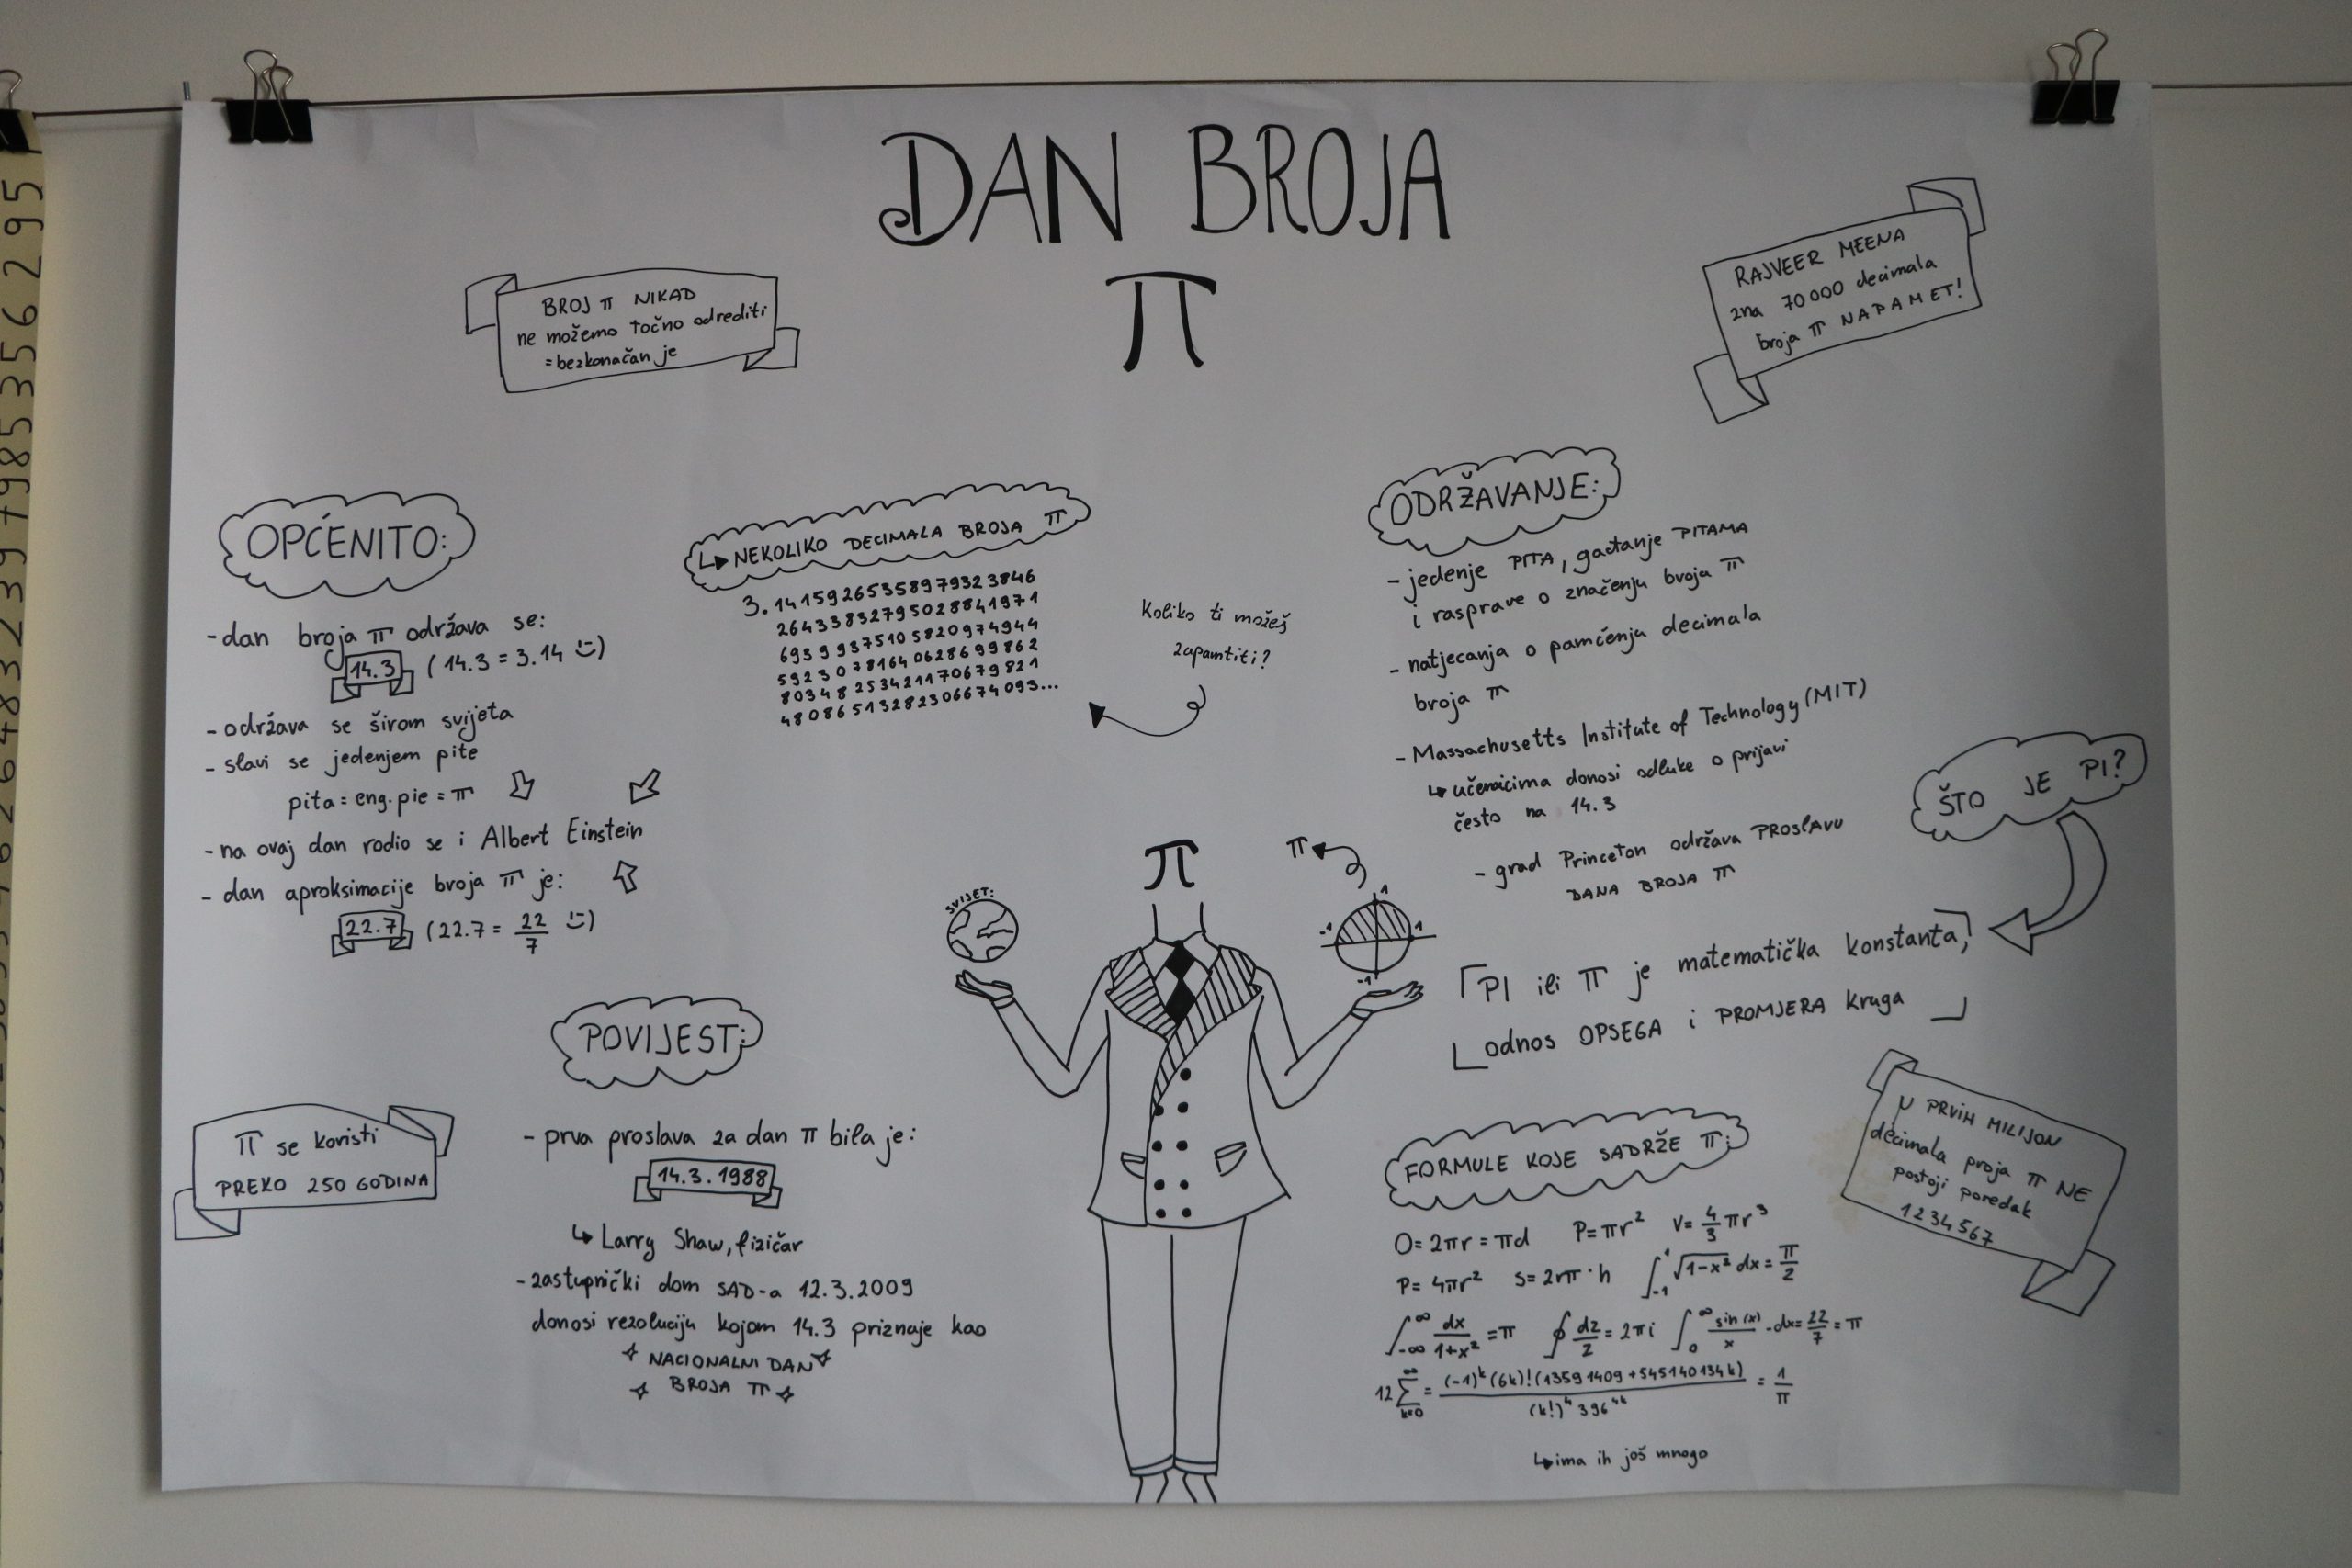 DAN BROJA
π
BROJ π NIKAD
ne možemo točno odrediti
=bezkonačan je
RAJVEER MEENA
zna 70 000 decimala
broja π NAPAMET!
OPĆENITO:
-dan broja π održava se:
14.3 (14.3 = 3.14 :))
-održava se širom svijeta
- slavi se jedenjem pite
pita = eng. pie = π
-na ovaj dan rodio se i Albert Einstein
- dan aproksimacije broja π je:
22.7 (22.7 = 22/7 :))
↳ NEKOLIKO DECIMALA BROJA π
3.14159265358979323846
26433832795028841971
69399375105820974944
59230781640628699862
80348253421170679821
48086513282306674093...
Koliko ti možeš
zapamtiti?
ODRŽAVANJE:
- jedenje PITA, gađanje PITAMA
i rasprave o značenju broja π
- natjecanja o pamćenju decimala
broja π
- Massachusetts Institute of Technology (MIT)
↳ učenicima donosi odluke o prijavi
često na 14.3
- grad Princeton održava PROSLAVU
DANA BROJA π
ŠTO JE PI?
PI ili π je matematička konstanta,
odnos OPSEGA i PROMJERA kruga
SVIJET:
π
π
1
-1
1
-1
POVIJEST:
- prva proslava za dan π bila je:
14.3.1988
↳ Larry Shaw, fizičar
- zastupnički dom SAD-a 12.3.2009
donosi rezoluciju kojom 14.3 priznaje kao
NACIONALNI DAN
BROJA π
π se koristi
PREKO 250 GODINA
FORMULE KOJE SADRŽE π:
O= 2πr = πd P= πr² V= 4/3 πr³
P= 4πr² S= 2rπ·h ∫₋₁¹ √(1-x²) dx = π/2
∫₋∞^∞ dx/(1+x²) = π ∮ dz/z = 2πi ∫₀^∞ sin(x)/x · dx = 22/7 = π
12 ∑_{k=0}^∞ = (-1)^k (6k)! (13591409 + 545140134k) / (k!)⁴ 396^{4k} = 1/π
↳ ima ih još mnogo
U PRVIH MILIJON
decimala proja π NE
postoji poredak
1234567